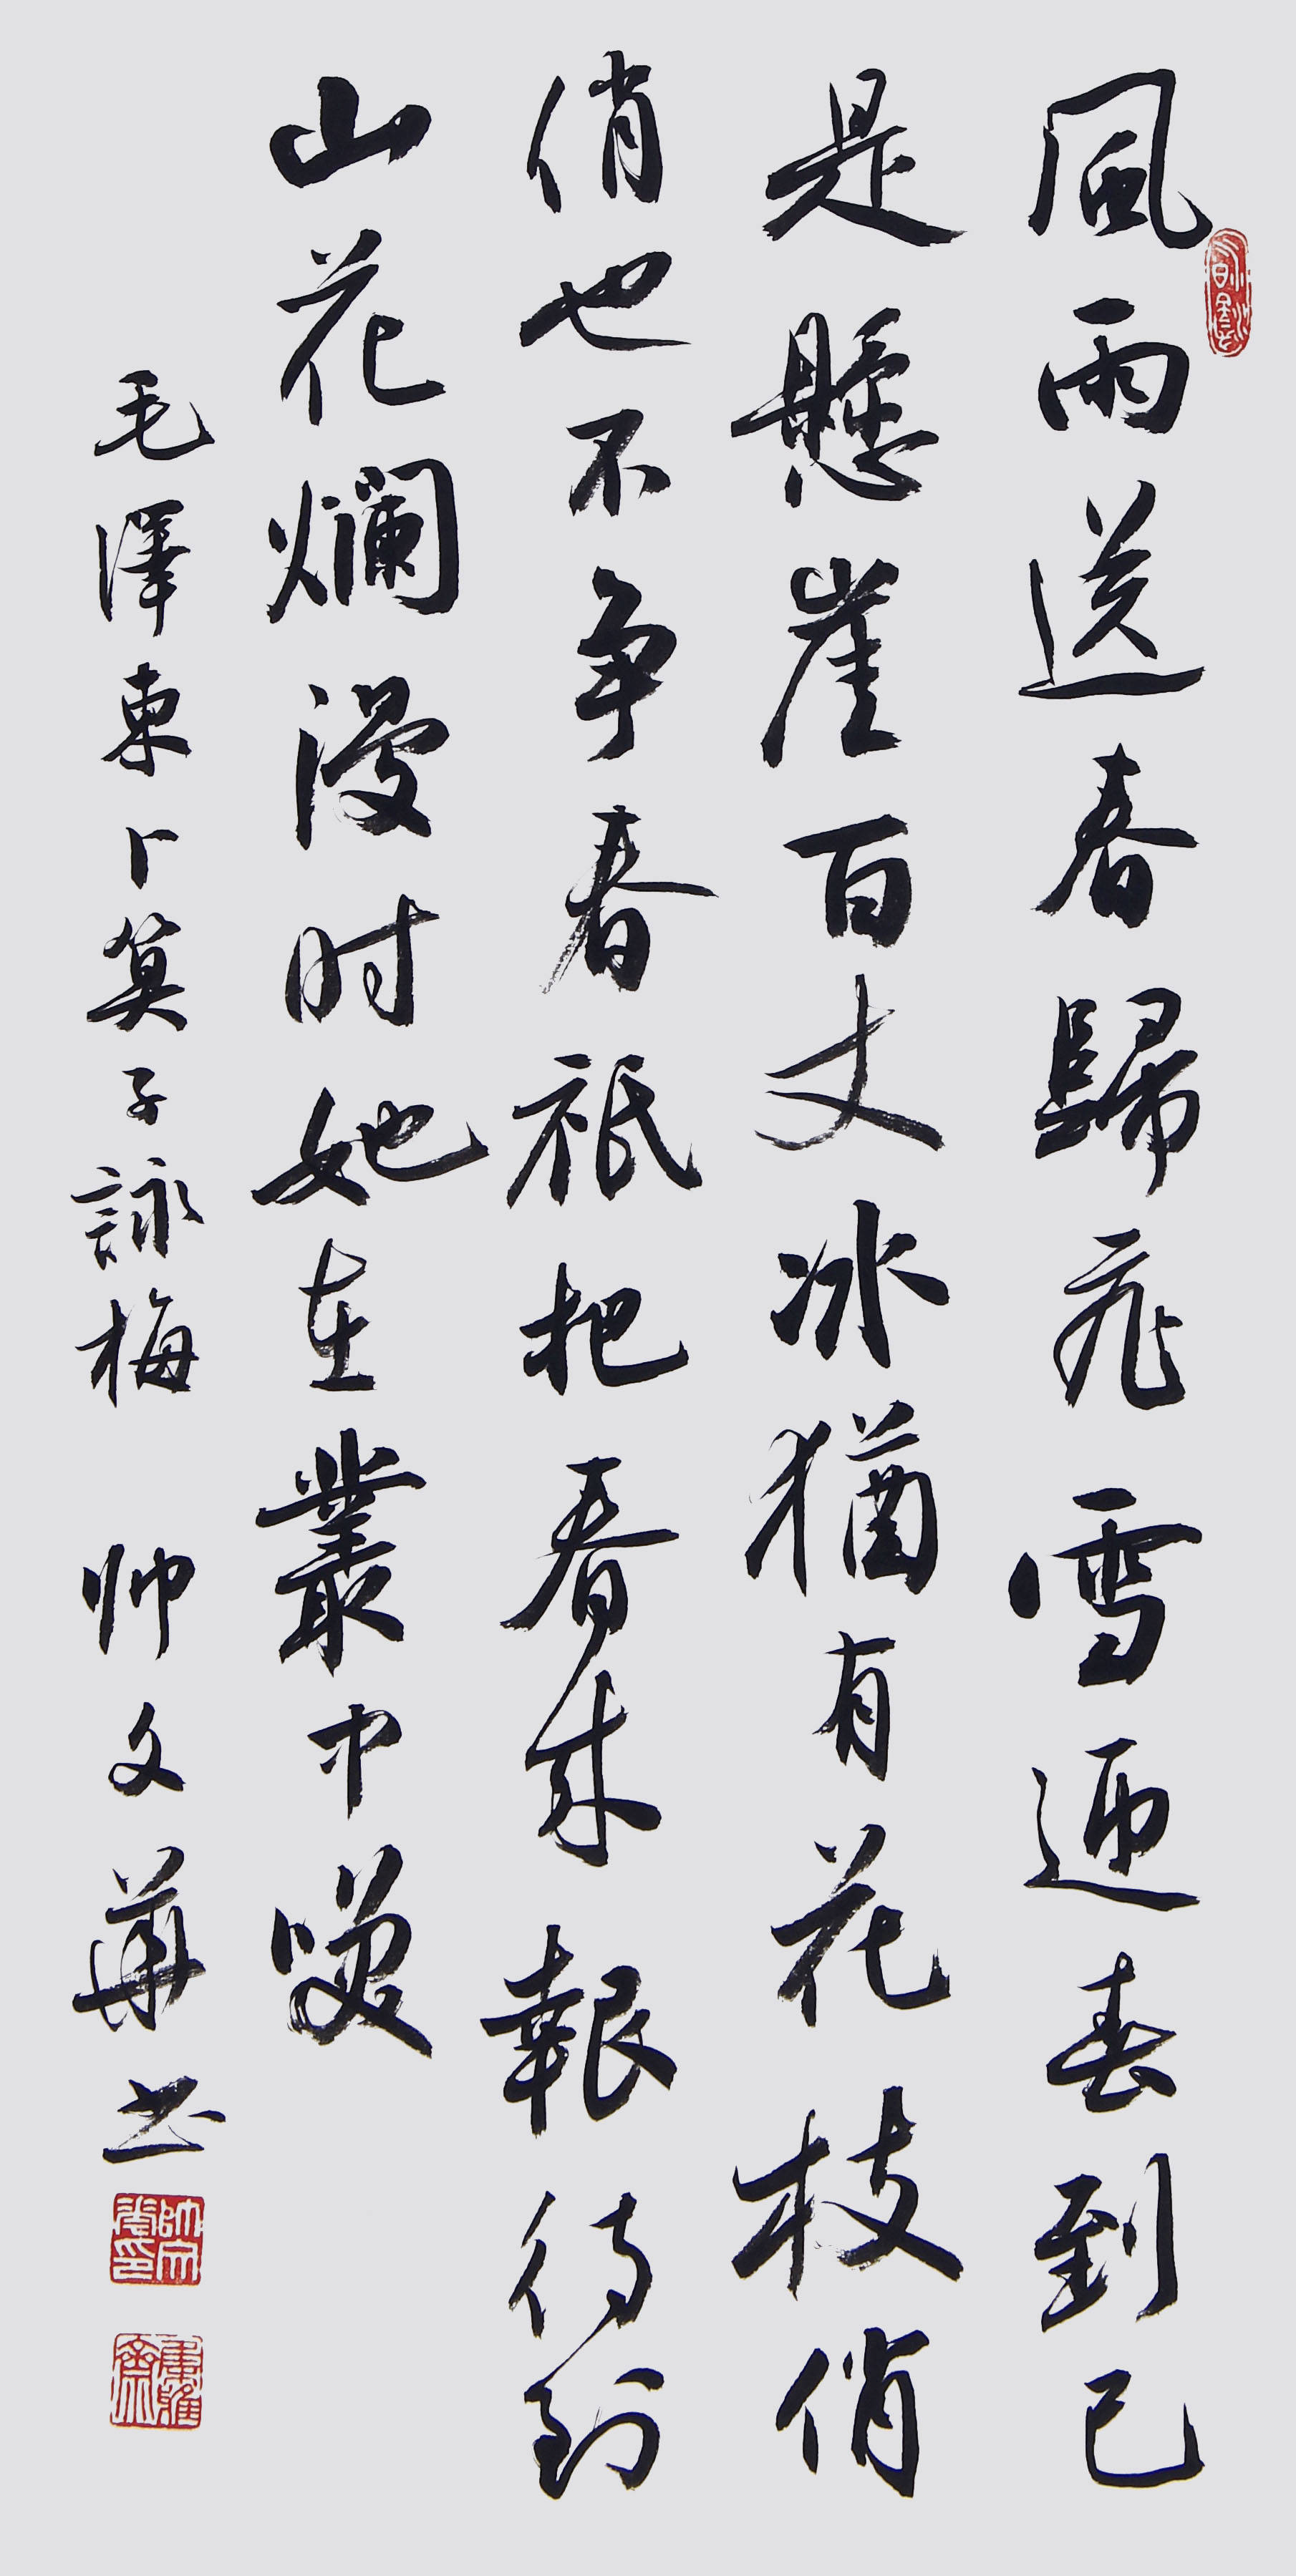 風雨送春歸飛雪迎春到已
是懸崖百丈冰猶有花枝俏
俏也不争春祇把春来報待到
山花爛漫时她在叢中笑
毛澤東卜算子詠梅 帅文華书